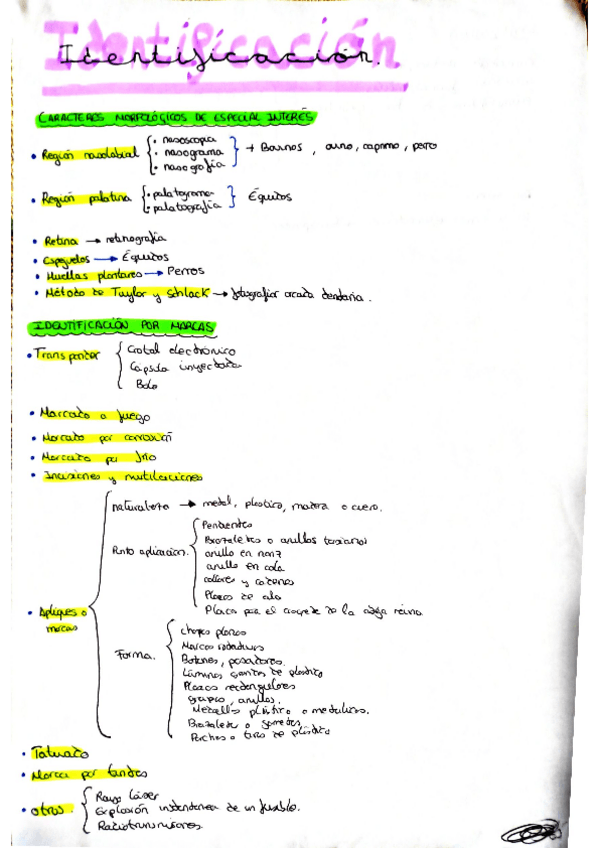 Identificación.
CARACTERES MORFOLÓGICOS DE ESPECIAL INTERÉS
• Región nasolabial { • nasoscopia • nasograma • nasografía } → Bovinos, ovino, caprino, perro
• Región palatina { • palatograma • palatografía } Équidos
• Retina → retinografía
• Espejuelos → Équidos
• Huellas plantares → Perros
• Método de Taylor y Schlack → fotografiar arcada dentaria.
IDENTIFICACIÓN POR MARCAS
• Transponder { Crotal electrónico
Capsula inyectada
Bolo
• Marcado a fuego
• Marcado por corrosión
• Marcado por frio
• Incisiones y mutilaciones
• Apliques o marcas
naturaleza → metal, plastico, madera o cuero.
Punto aplicacion.
Pendientes
Brazaletes o anillos tarsianos
anillo en nariz
anillo en cola
collares y cadenas
Placas de ala
Placa para el de la abeja reina.
Forma.
chapas planas
Marcas
Botones, pasadores.
Láminas de plástico
Placas rectangulares
grapas, anillos.
Medallas plástico o metalicas.
Brazalete o
Perchas o tiras de plástico
• Tatuado
• Marca por tandas
• otros. { Rayo láser
Explosión instantanea de un fusible.
Radiotransmisores